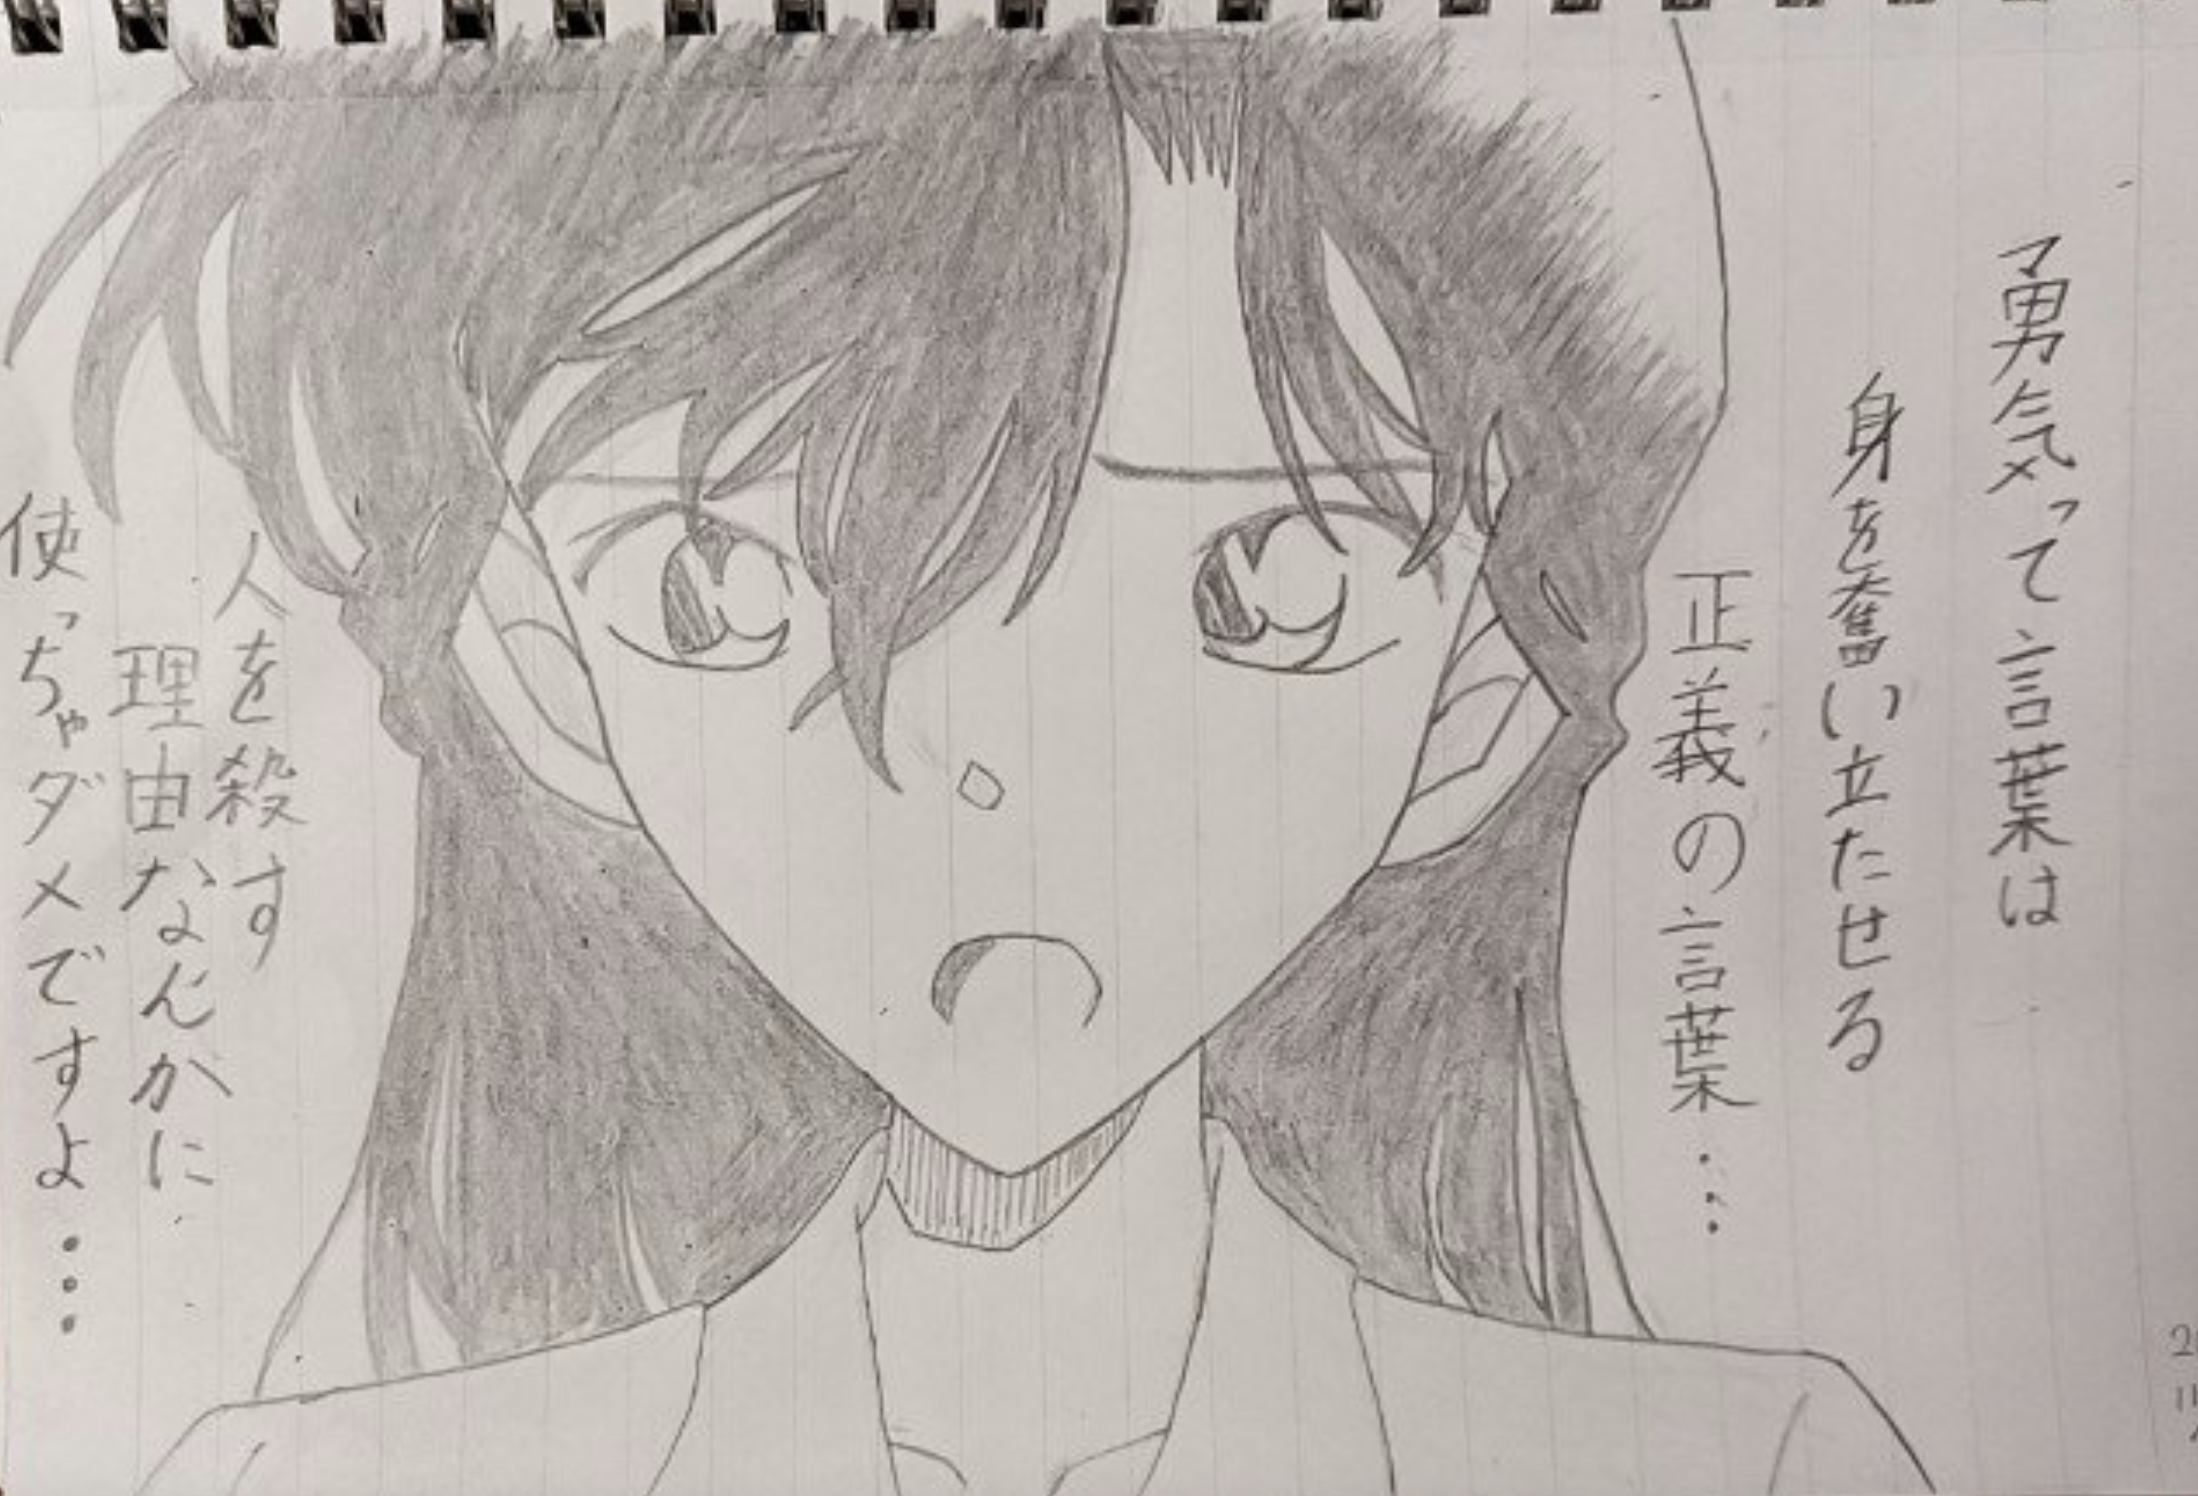 勇気って言葉は
身を奮い立たせる
正義の言葉…
人を殺す
理由なんかに
使っちゃダメですよ…